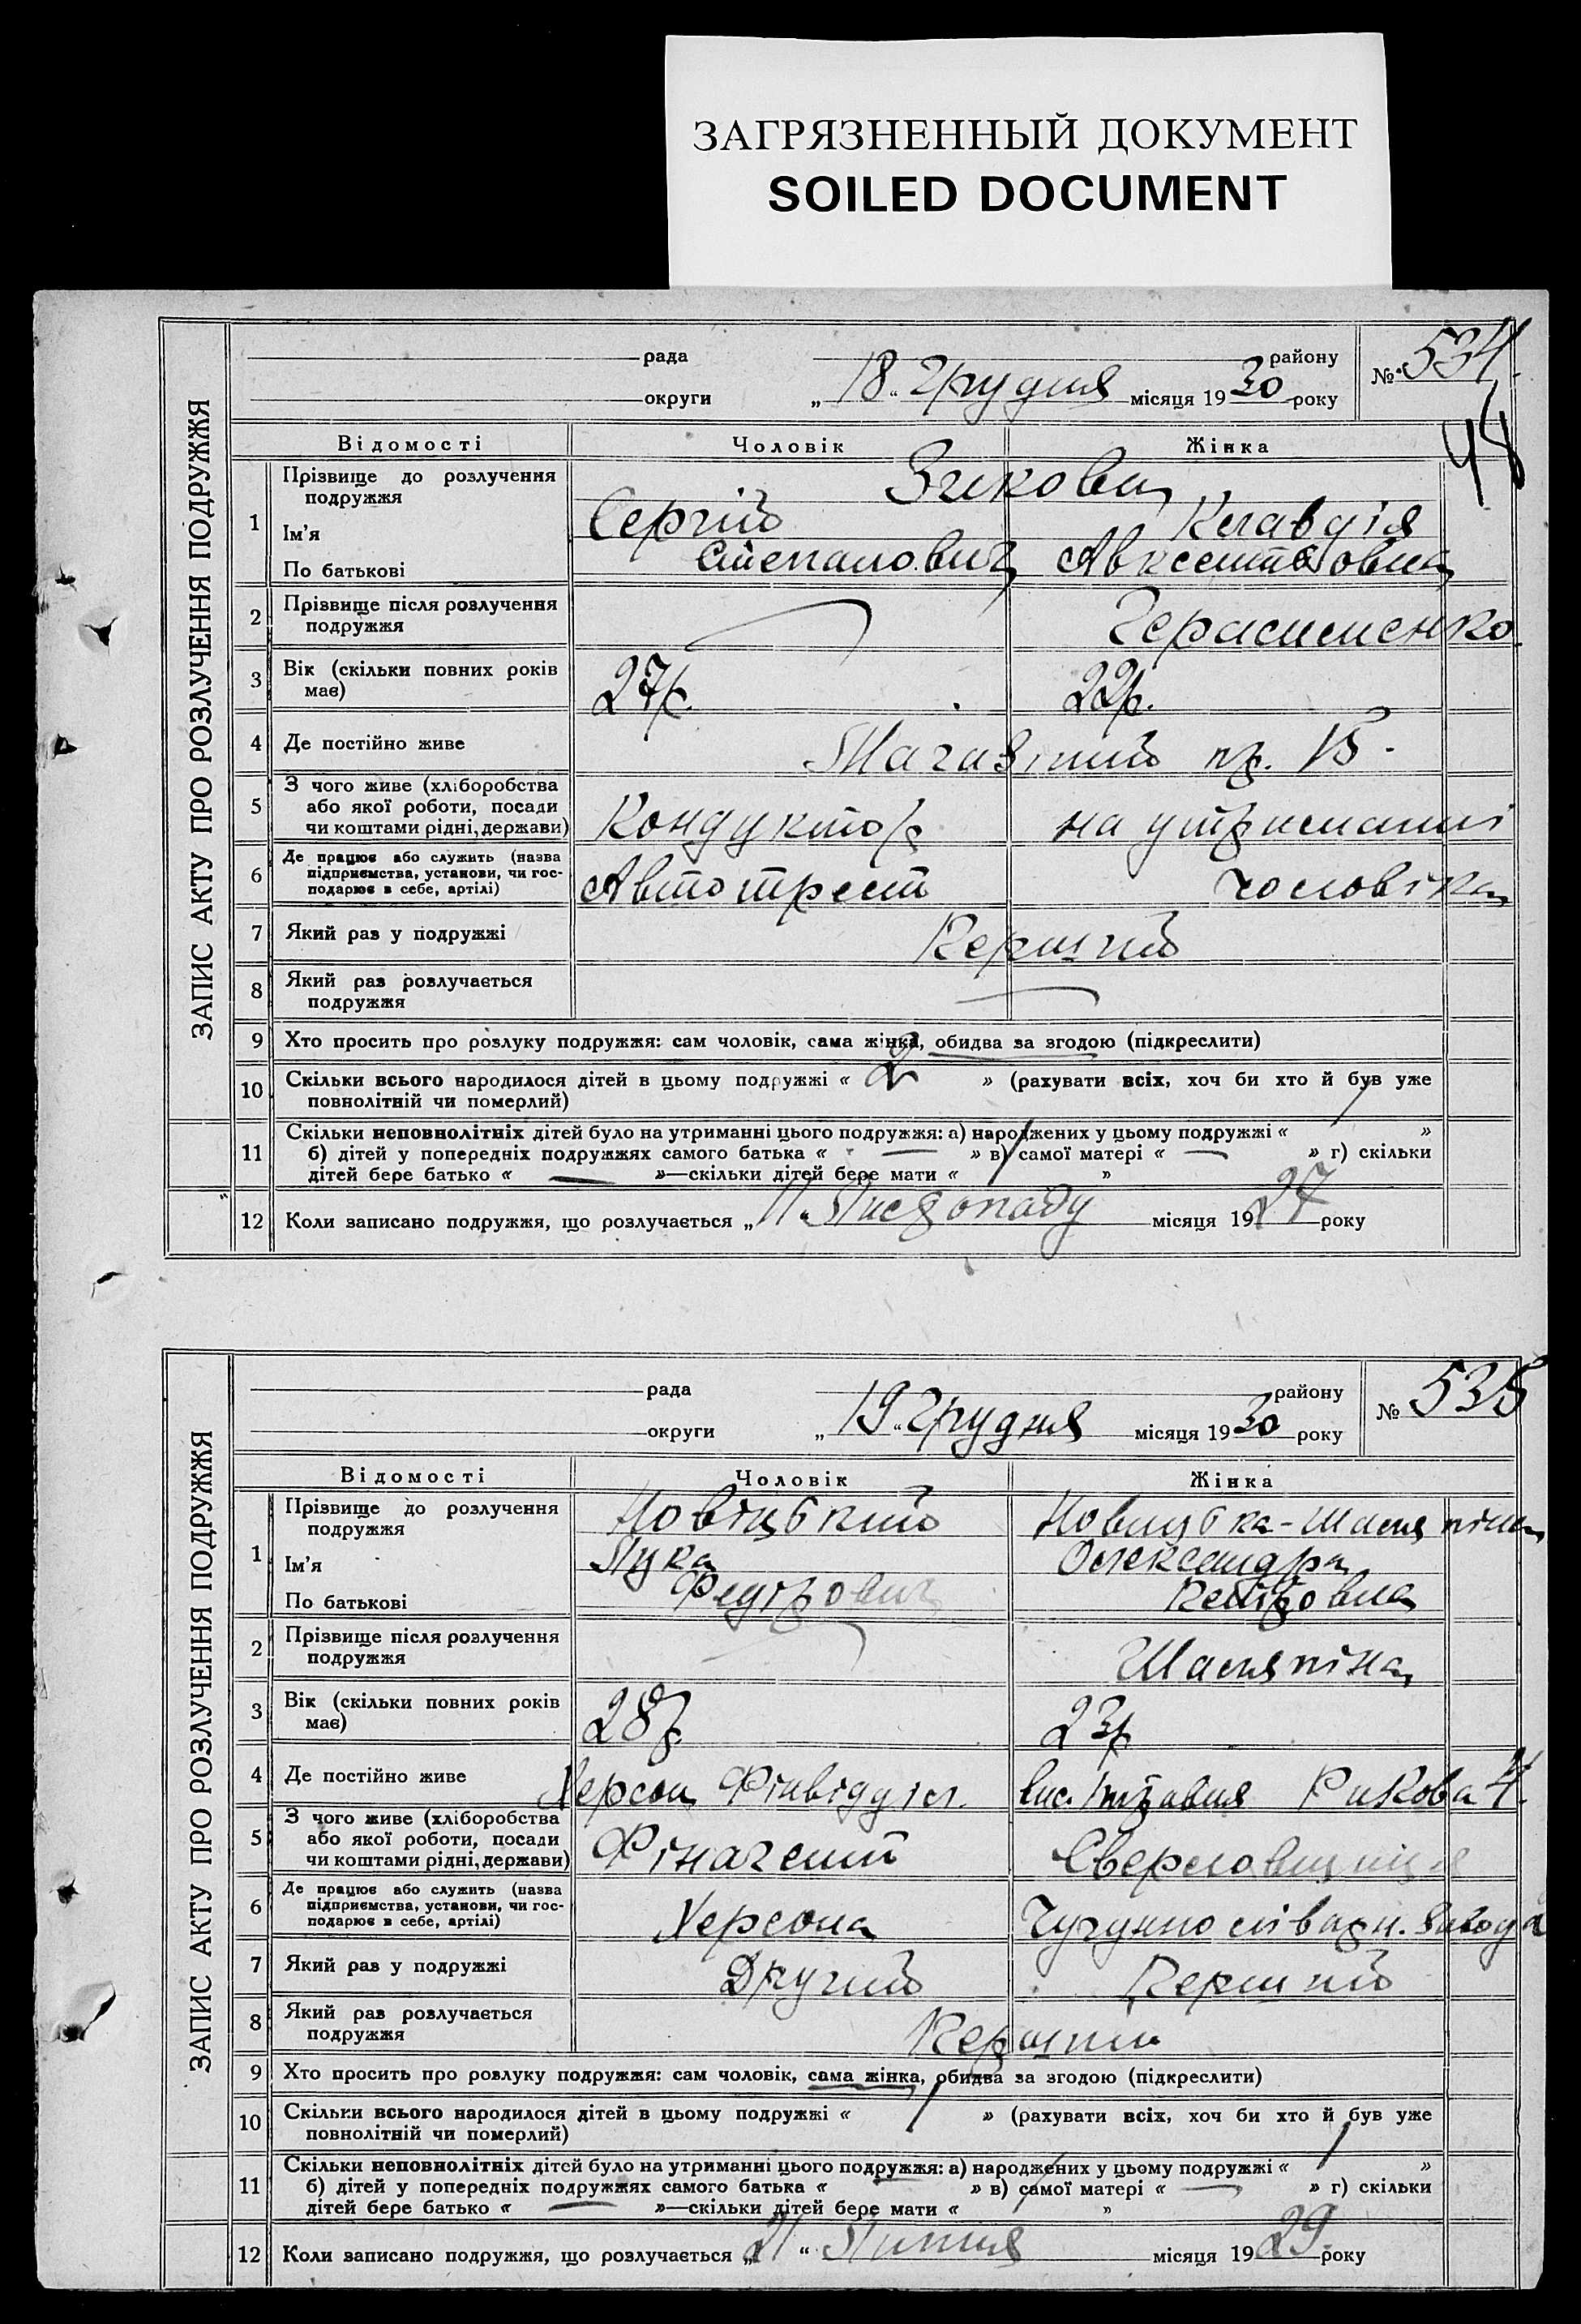 ЗАГРЯЗНЕННЫЙ ДОКУМЕНТ
SOILED DOCUMENT
ЗАПИС АКТУ ПРО РОЗЛУЧЕННЯ ПОДРУЖЖЯ
рада району
№ 534
округи „18“ Грудня місяця 1930 року
48
Відомості Чоловік Жінка
1 Прізвище до розлучення подружжя Зикови
Ім'я Сергій Клавдія
По батькові Степанович Авксентьовна
2 Прізвище після розлучення
подружжя Герасименко
3 Вік (скільки повних років
має) 27р. 22р.
4 Де постійно живе Магазіний пр. 15.
5 З чого живе (хліборобства
або якої роботи, посади
чи коштами рідні, держави) Кондуктор на утриманні
6 Де працює або служить (назва
підприємства, установи, чи гос-
подарює в себе, артілі) Автотрест чоловіка
7 Який раз у подружжі Перший
8 Який раз розлучається
подружжя
9 Хто просить про розлуку подружжя: сам чоловік, сама жінка, обидва за згодою (підкреслити)
10 Скільки всього народилося дітей в цьому подружжі « 2 » (рахувати всіх, хоч би хто й був уже
повнолітній чи померлий)
11 Скільки неповнолітніх дітей було на утриманні цього подружжя: а) народжених у цьому подружжі « »
б) дітей у попередніх подружжях самого батька « — » в) самої матері « — » г) скільки
дітей бере батько « — »—скільки дітей бере мати « »
12 Коли записано подружжя, що розлучається „11“ Листопаду місяця 1927 року
ЗАПИС АКТУ ПРО РОЗЛУЧЕННЯ ПОДРУЖЖЯ
рада району
№ 535
округи „19“ Грудня місяця 1930 року
Відомості Чоловік Жінка
1 Прізвище до розлучення
подружжя Новіцький Новицька-Шаляпіна
Ім'я Лука Олександра
По батькові Федірович Петровна
2 Прізвище після розлучення
подружжя Шаляпіна
3 Вік (скільки повних років
має) 28р. 23р
4 Де постійно живе Херсон Фінвідділ. Рикова 4.
5 З чого живе (хліборобства
або якої роботи, посади
чи коштами рідні, держави) Фінагент Сверловщиця
6 Де працює або служить (назва
підприємства, установи, чи гос-
подарює в себе, артілі) Херсона Чугунно ліварн. завода
7 Який раз у подружжі Другий Перший
8 Який раз розлучається
подружжя Перший
9 Хто просить про розлуку подружжя: сам чоловік, сама жінка, обидва за згодою (підкреслити)
10 Скільки всього народилося дітей в цьому подружжі « » (рахувати всіх, хоч би хто й був уже
повнолітній чи померлий)
11 Скільки неповнолітніх дітей було на утриманні цього подружжя: а) народжених у цьому подружжі « »
б) дітей у попередніх подружжях самого батька « » в) самої матері « — » г) скільки
дітей бере батько « — »—скільки дітей бере мати « »
12 Коли записано подружжя, що розлучається „21“ Липня місяця 1929 року